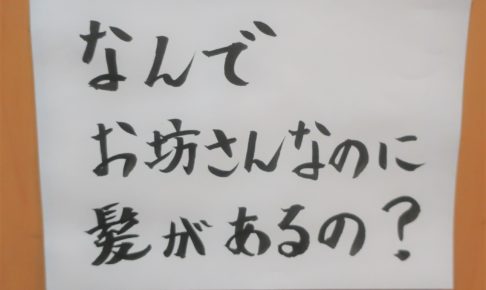 なんで
お坊さんなのに
髪があるの？